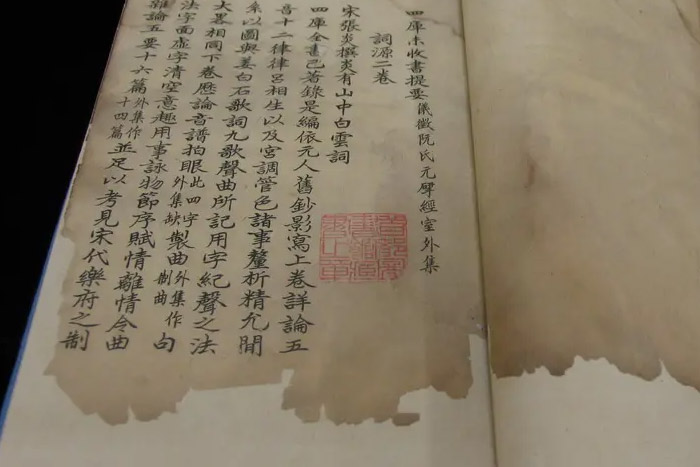 四庫未收書提要 儀徵阮氏元揅經室外集
詞源二卷
宋張炎撰炎有山中白雲詞
四庫全書已著錄是編依元人舊鈔影寫上卷詳論五
音十二律律呂相生以及宮調管色諸事釐析精允閒
系以圖與姜白石歌詞九歌聲曲所記用字紀聲之法
大畧相同下卷歷論音譜拍眼此四字外集缺製曲外集作制曲句
法字面虛字清空意趣用事詠物節序賦情離情令曲
雜論五要十六篇外集作十四篇並足以考見宋代樂府之制